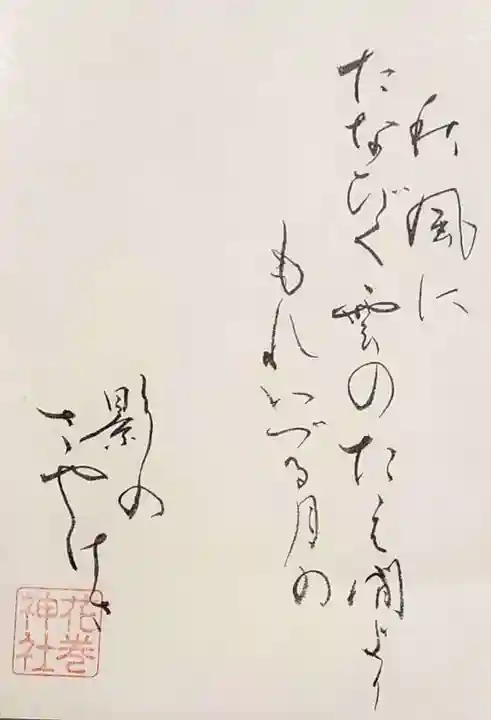 秋風に
たなびく雲のたえ間より
もれいづる月の
影の
さやけさ
花巻
神社